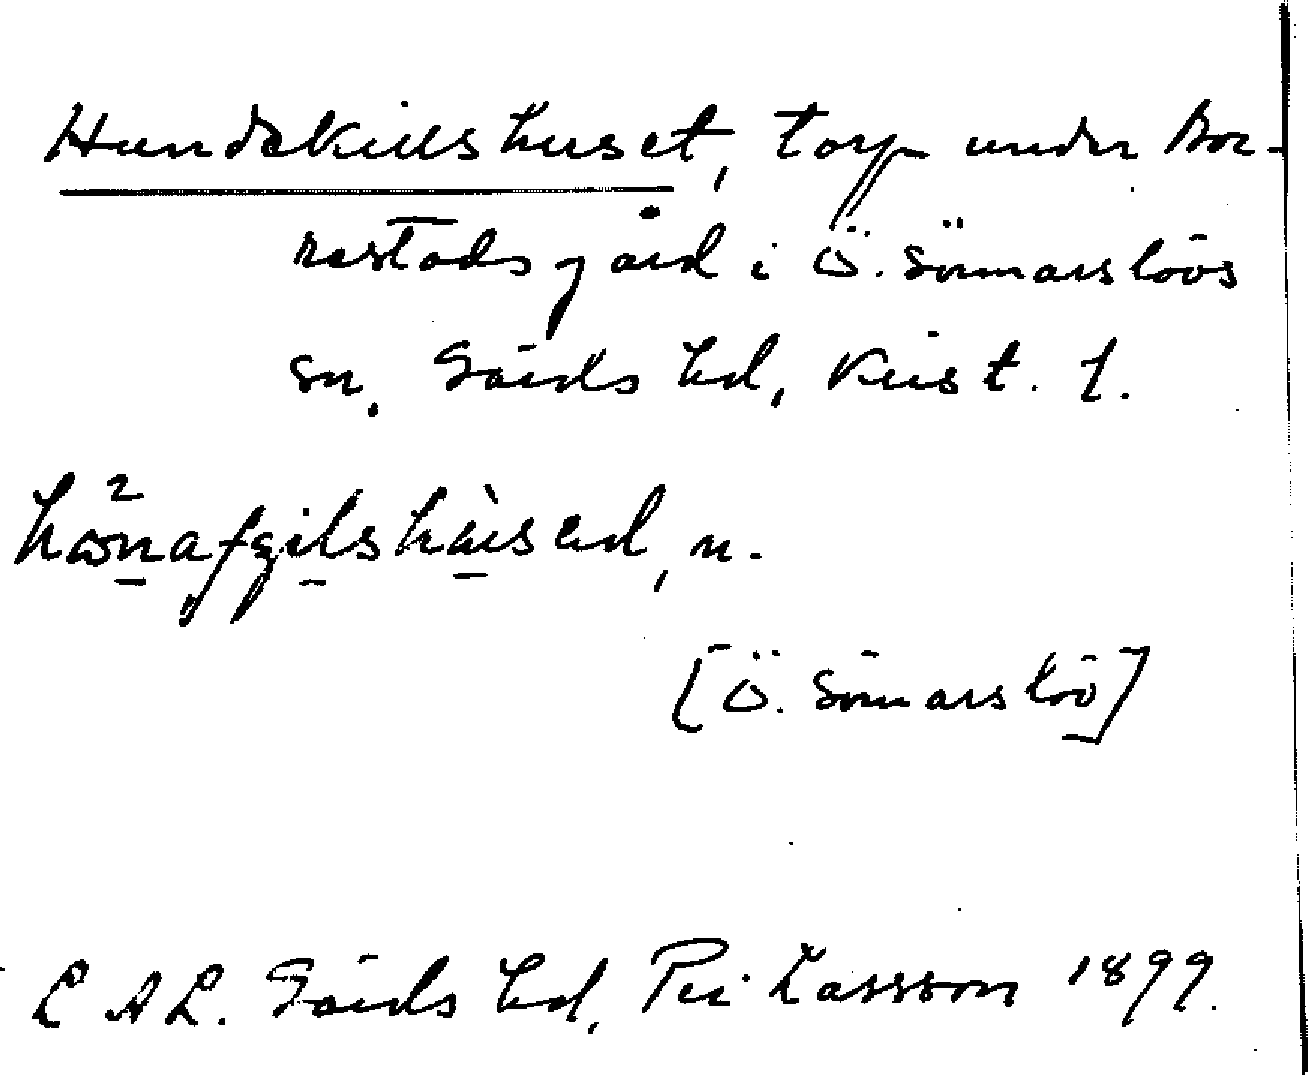 Hundekillshuset, torp under Bor-
restads gård i Ö. Sönnarslövs
sn, Gärds hd, Krist. l.
n.
[Ö. Sönnarslöv]
L A L. Gärds hd, Per Larsson 1899.